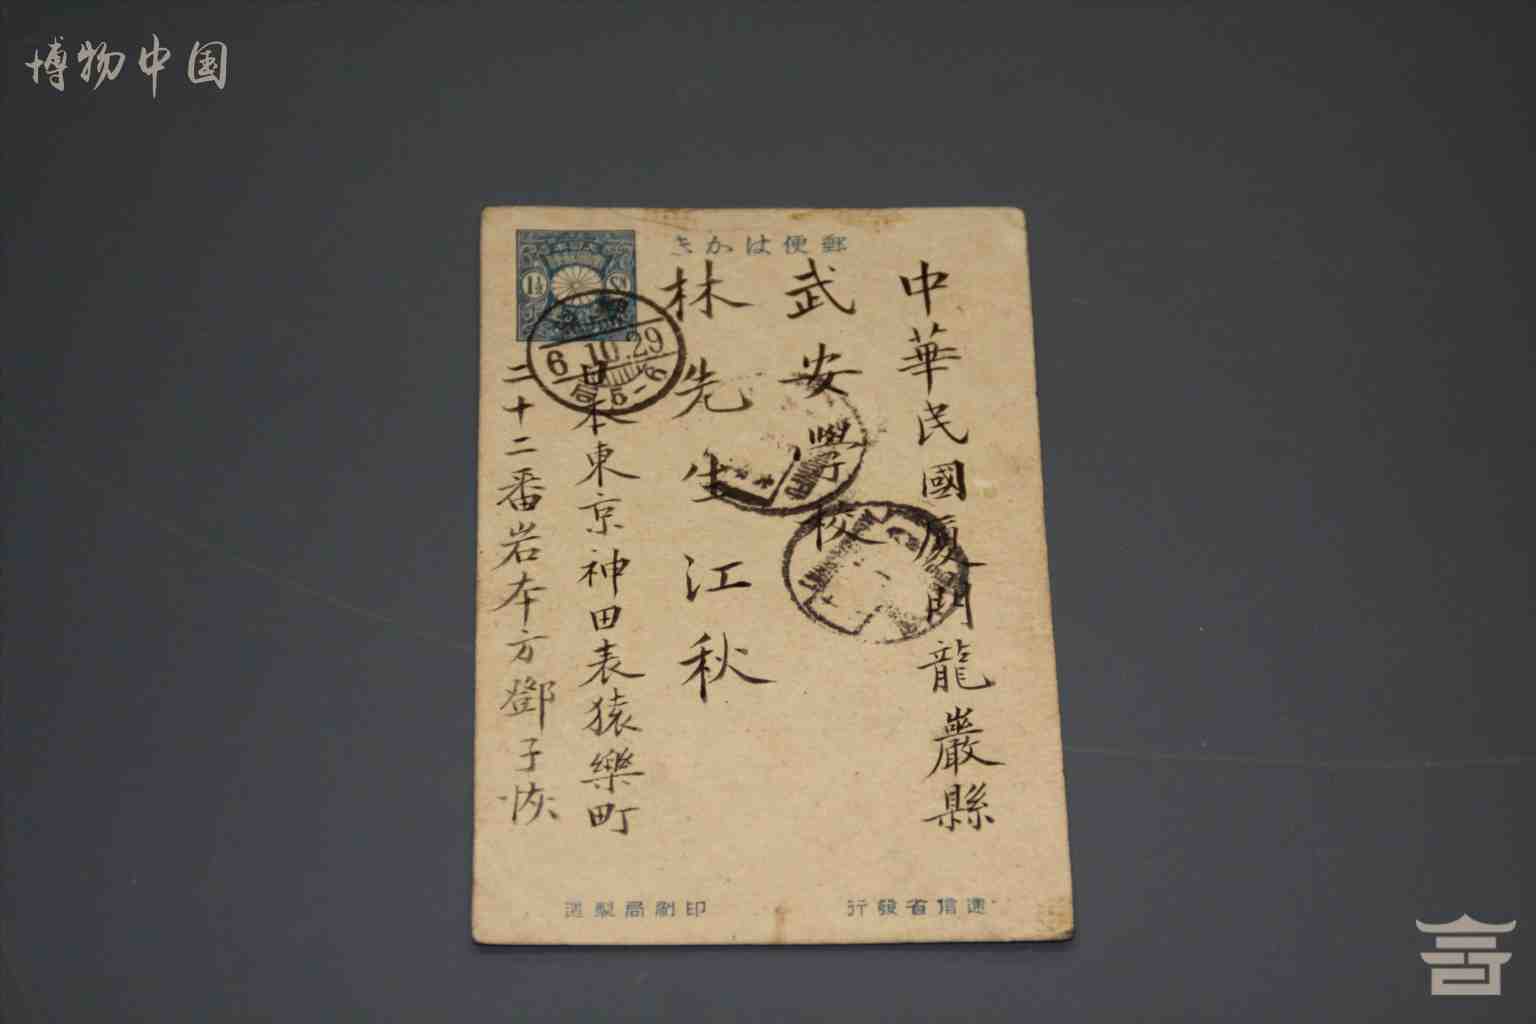 博物中国
郵便はかき
中華民國厦門龍巖縣
武安學校
林先生江秋
日本東京神田表猿樂町
二十二番岩本方鄧子恢
1½
6.10.29
遞信省發行
印刷局製造